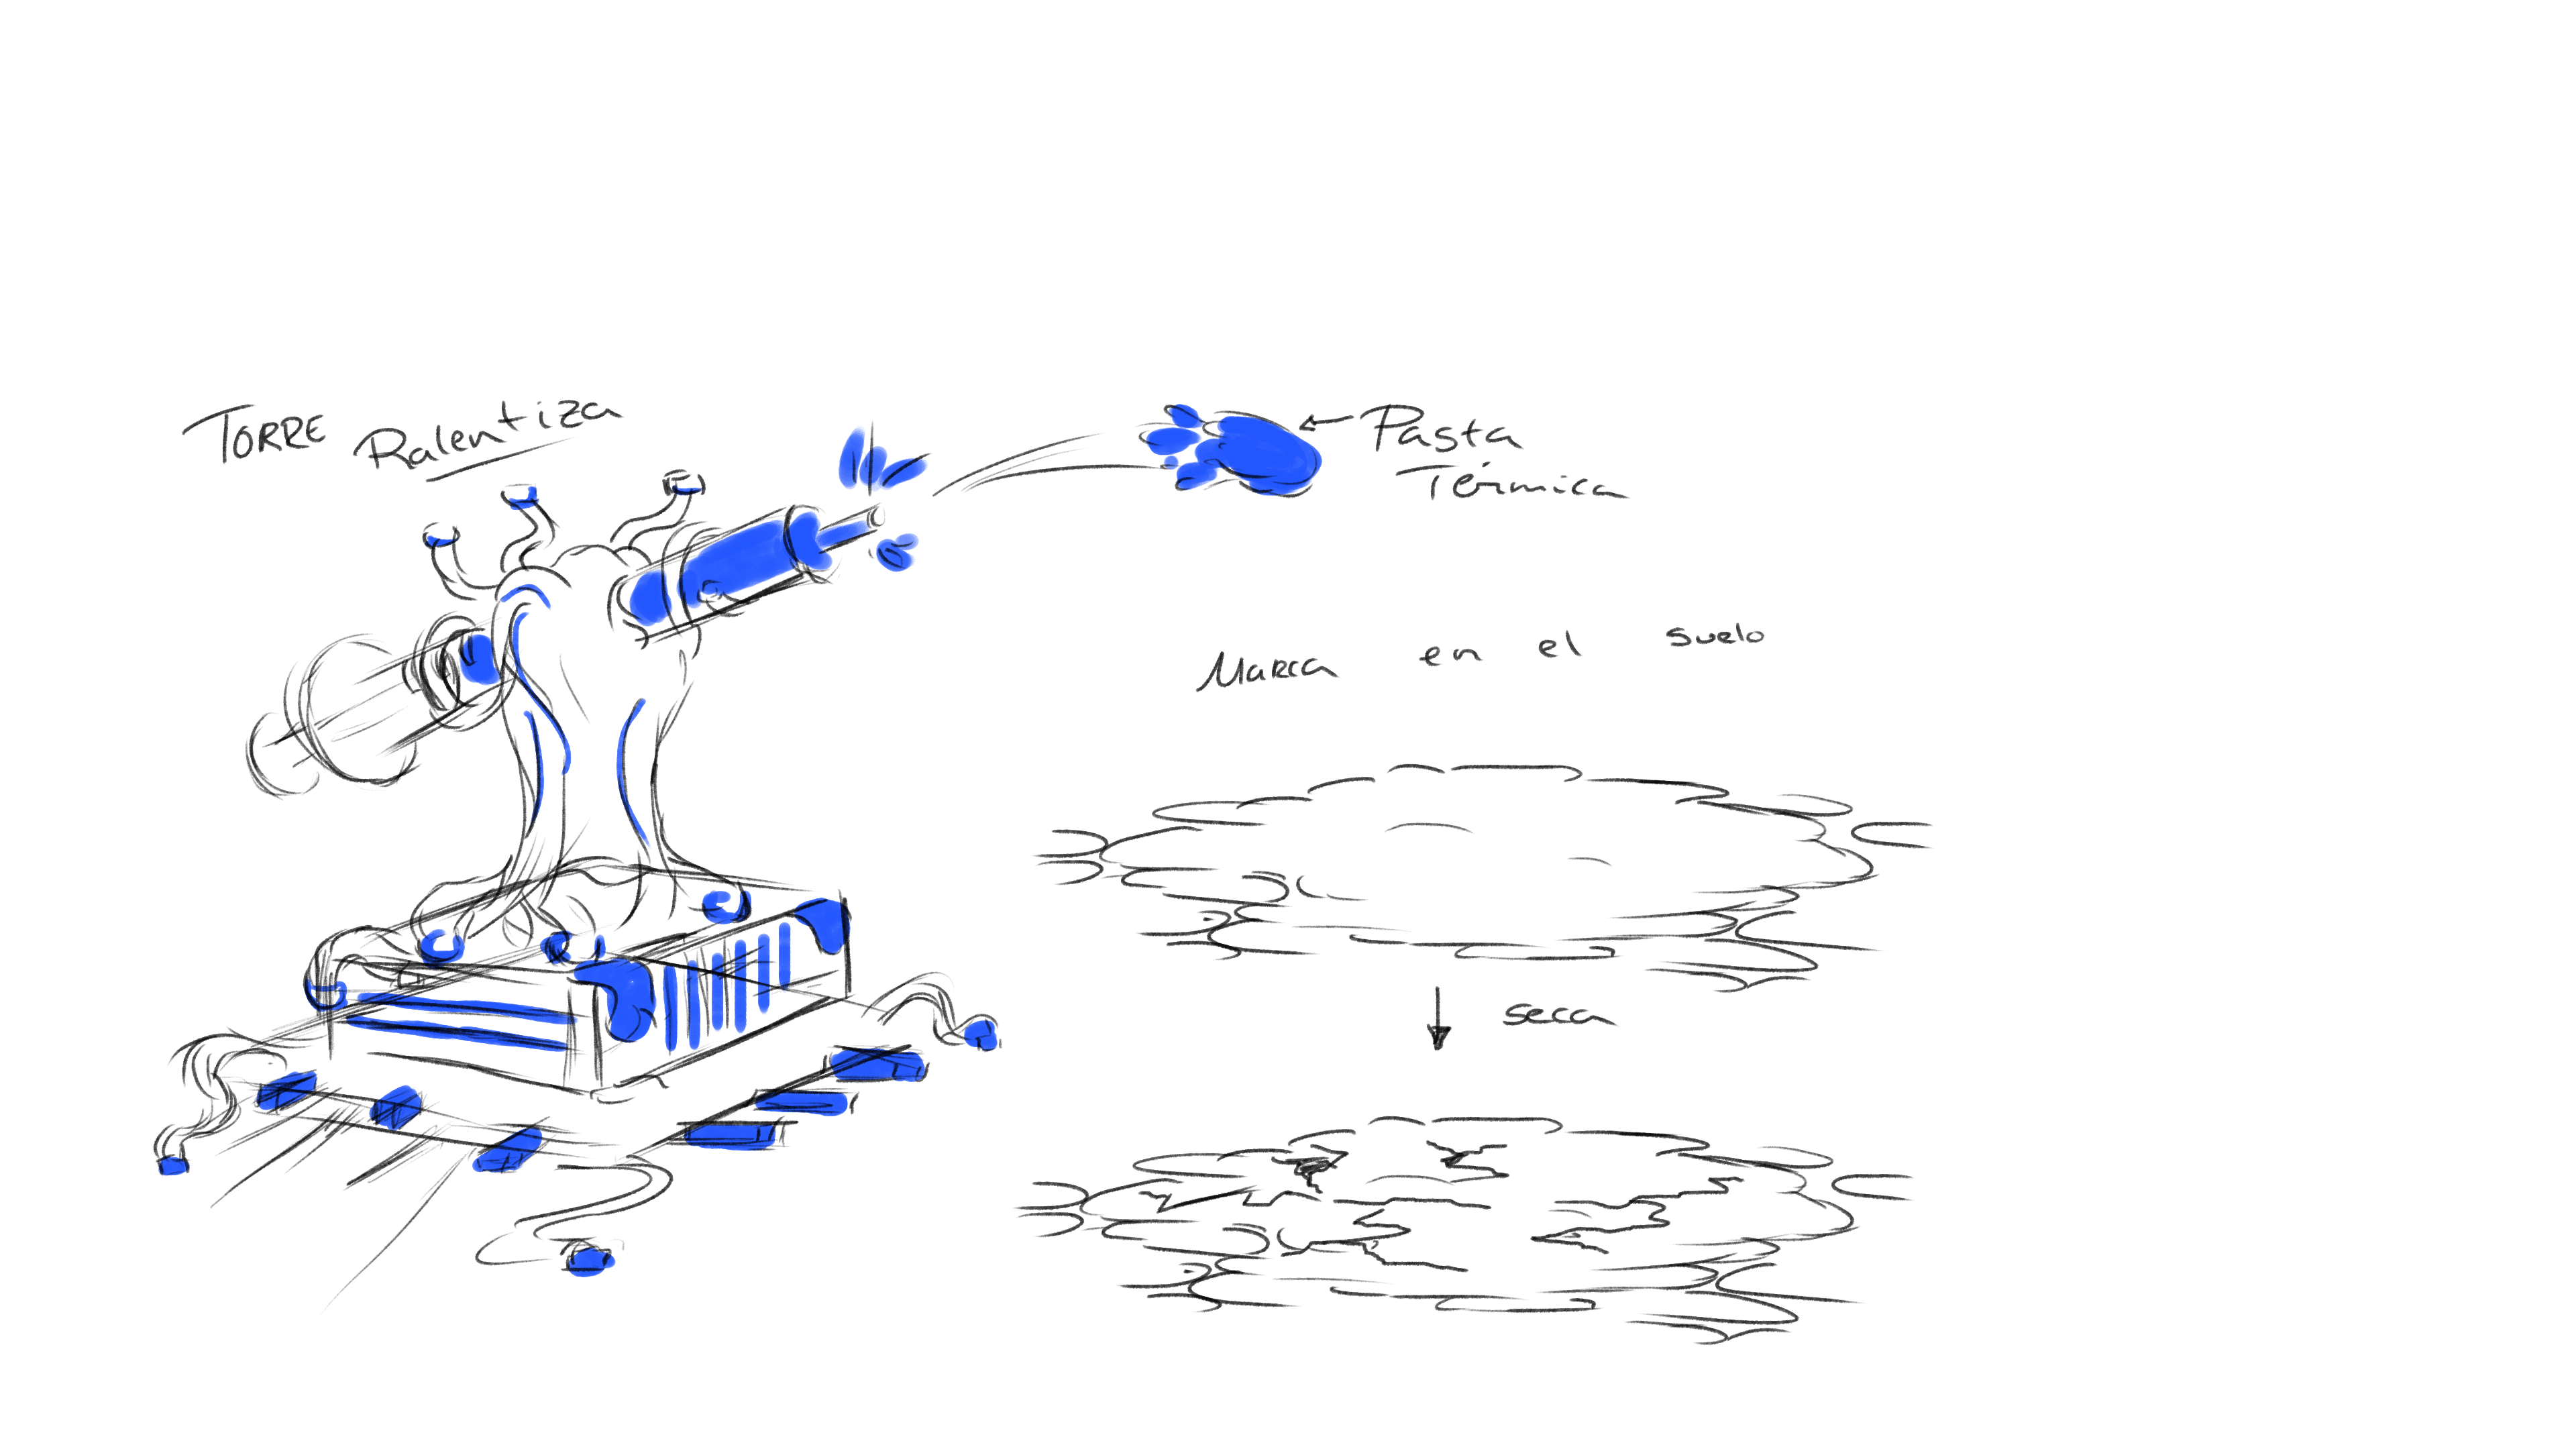 TORRE Ralentiza
Pasta
Térmica
Marca en el suelo
seca